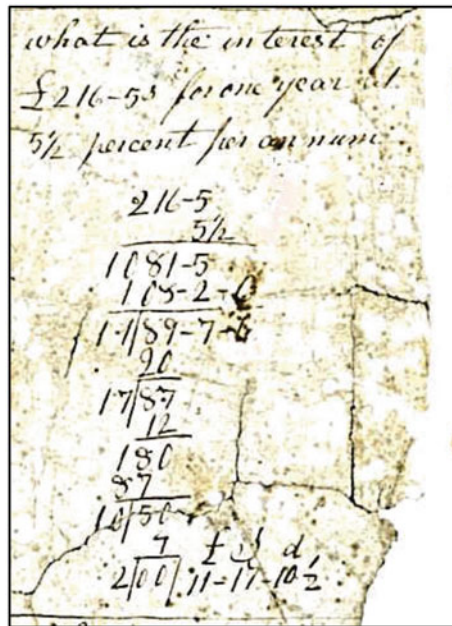 what is the interest of
£216-5s for one year at
5½ percent per annum
216-5
5½
1081-5
108-2-6
11|89-7-6
20
17|87
12
180
87
10|50
4
2|00| £ S d
11-17-10½